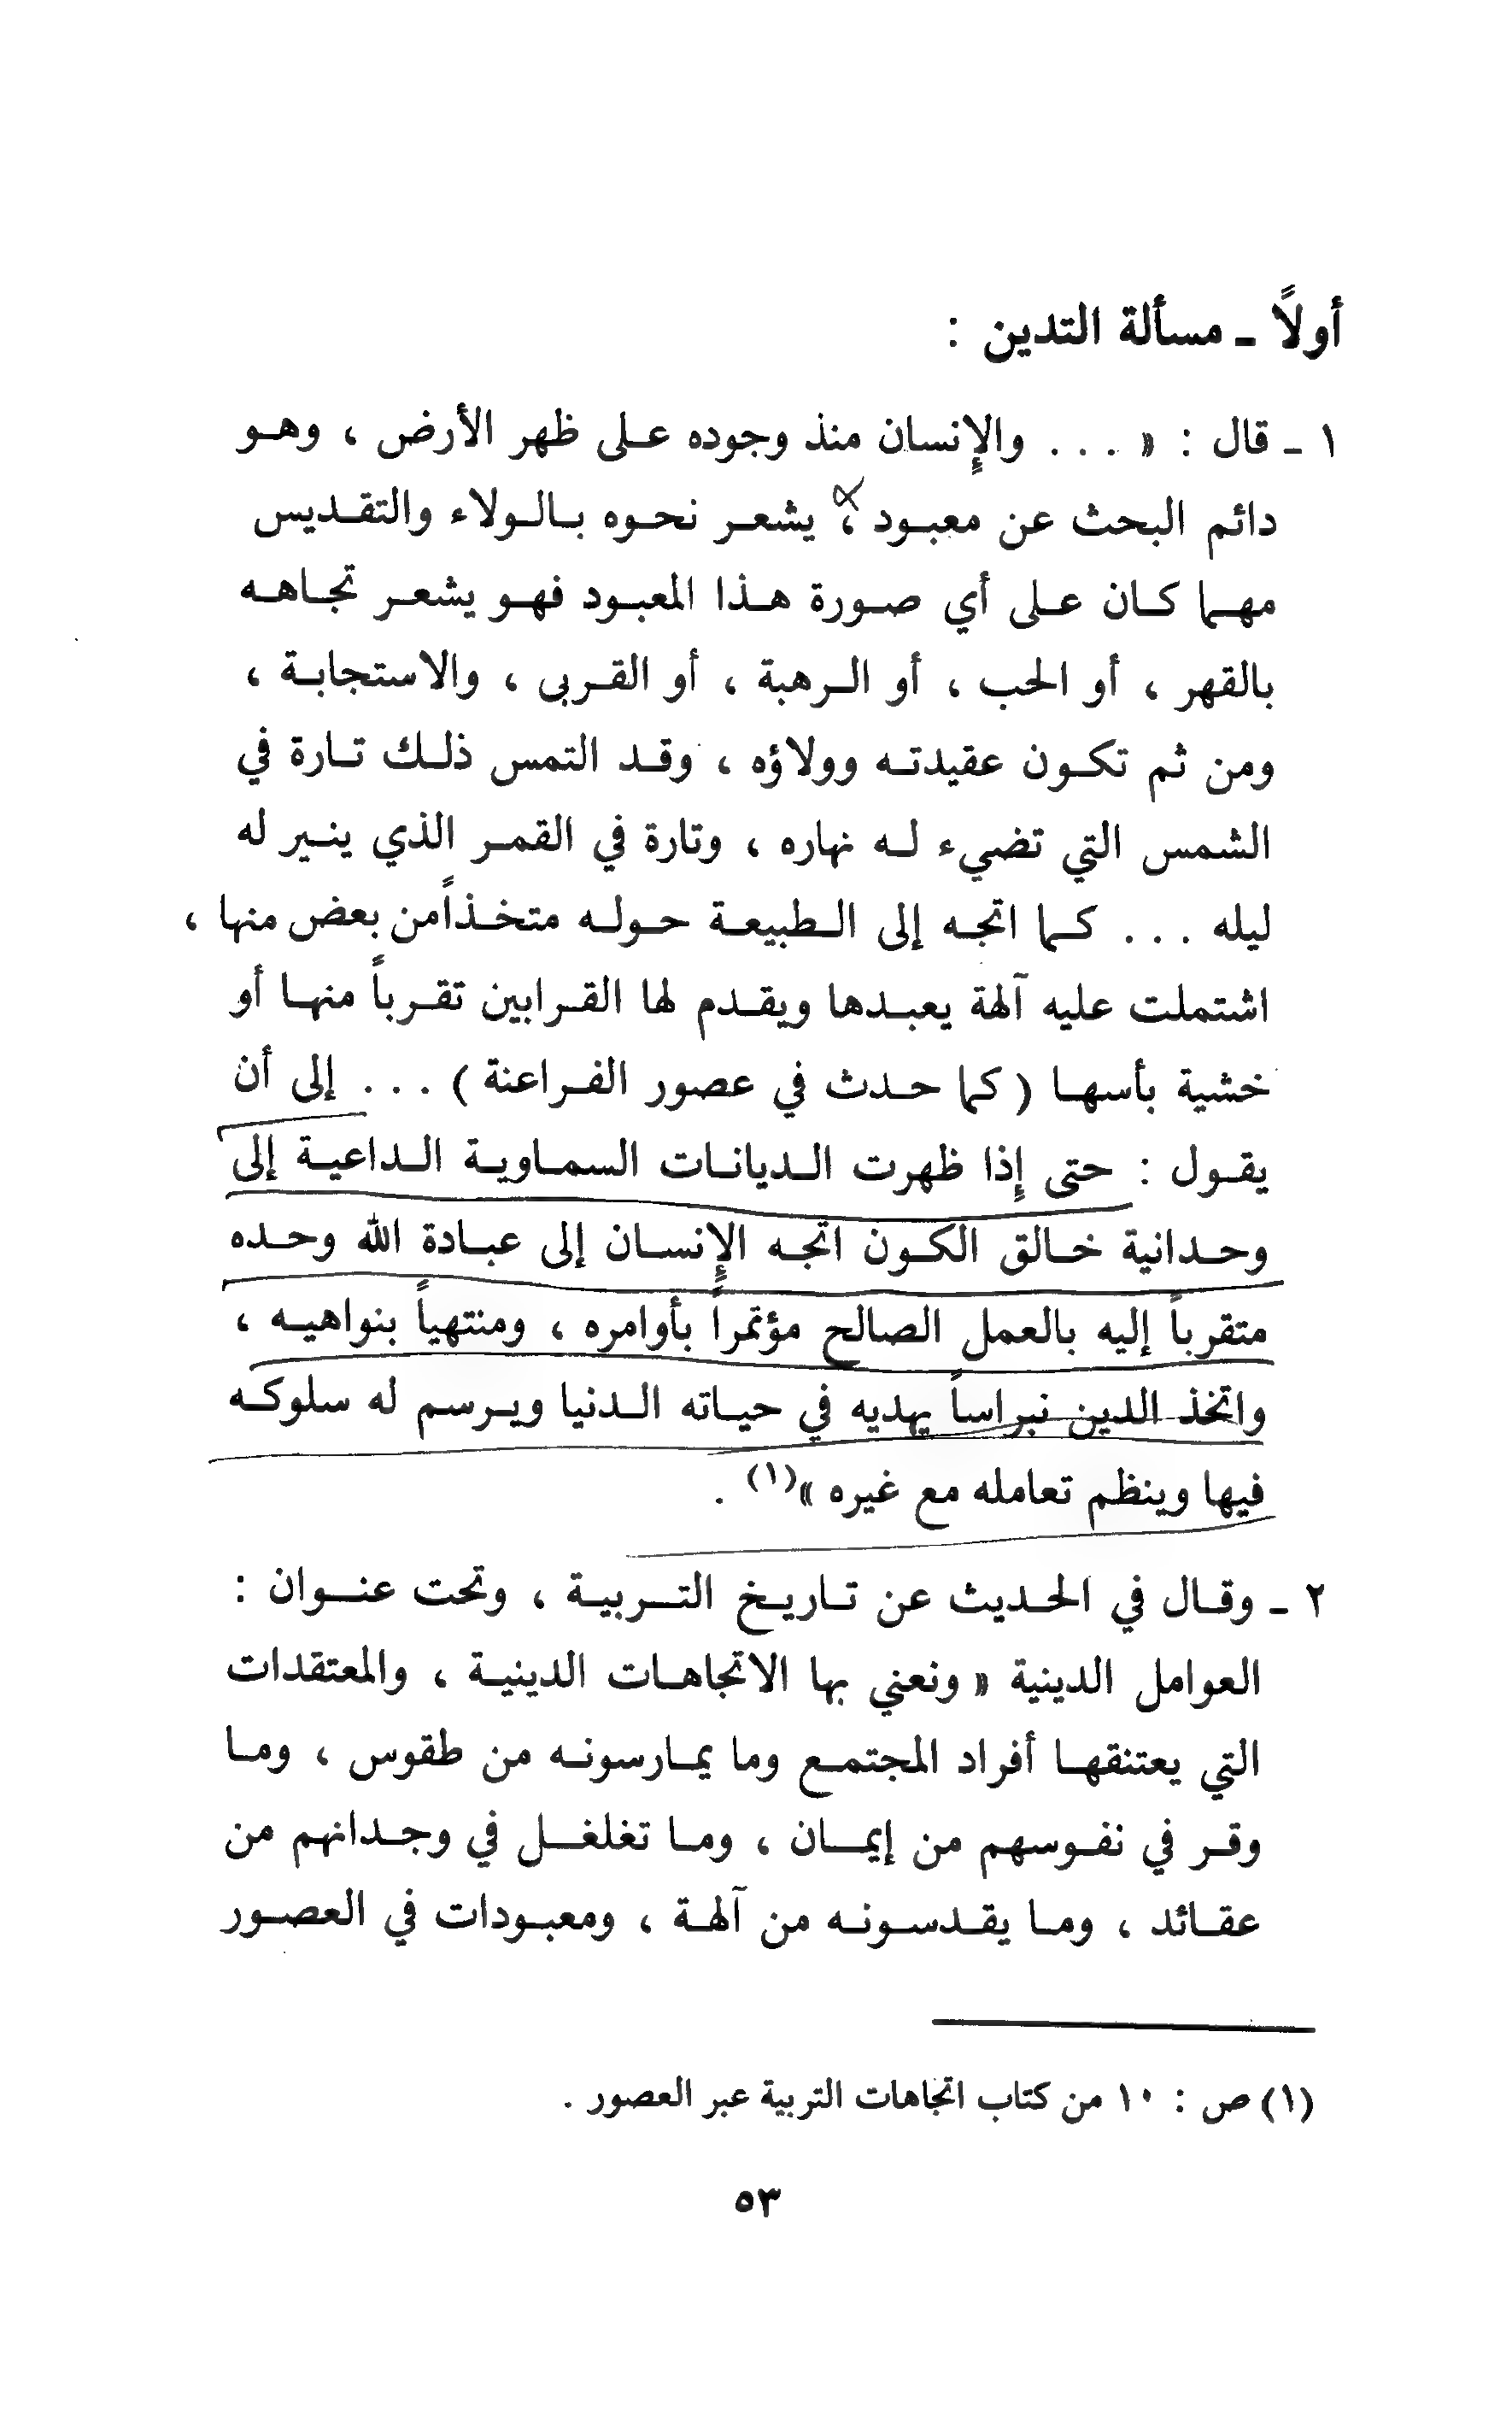 أولاً ـ مسألة التدين :
١ ـ قال : « . . . والإنسان منذ وجوده على ظهر الأرض ، وهو
دائم البحث عن معبود ، يشعر نحوه بالولاء والتقديس
مهما كان على أي صورة هذا المعبود فهو يشعر تجاهه
بالقهر ، أو الحب ، أو الرهبة ، أو القربى ، والاستجابة ،
ومن ثم تكون عقيدته وولاؤه ، وقد التمس ذلك تارة في
الشمس التي تضيء له نهاره ، وتارة في القمر الذي ينير له
ليله . . . كما اتجه إلى الطبيعة حوله متخذاً من بعض منها ،
اشتملت عليه آلهة يعبدها ويقدم لها القرابين تقرباً منها أو
خشية بأسها ( كما حدث في عصور الفراعنة ) . . . إلى أن
يقول : حتى إذا ظهرت الديانات السماوية الداعية إلى
وحدانية خالق الكون اتجه الإنسان إلى عبادة الله وحده
متقرباً إليه بالعمل الصالح مؤتمراً بأوامره ، ومنتهياً بنواهيه ،
واتخذ الدين نبراساً يهديه في حياته الدنيا ويرسم له سلوكه
فيها وينظم تعامله مع غيره »(١) .
٢ ـ وقال في الحديث عن تاريخ التربية ، وتحت عنوان :
العوامل الدينية « ونعني بها الاتجاهات الدينية ، والمعتقدات
التي يعتنقها أفراد المجتمع وما يمارسونه من طقوس ، وما
وقر في نفوسهم من إيمان ، وما تغلغل في وجدانهم من
عقائد ، وما يقدسونه من آلهة ، ومعبودات في العصور
(١) ص : ١٠ من كتاب اتجاهات التربية عبر العصور .
٥٣